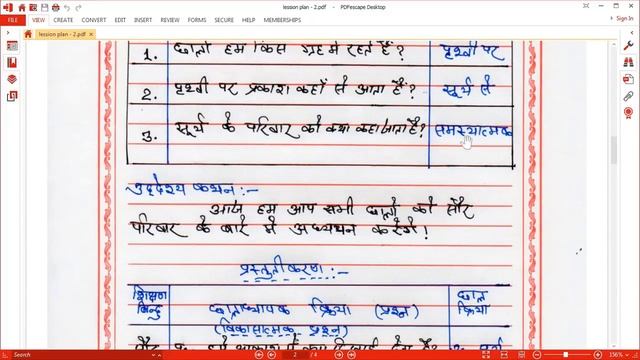 lesson plan - 2.pdf - PDFescape Desktop
FILE VIEW CREATE EDIT INSERT REVIEW FORMS SECURE HELP MEMBERSHIP
Sign In
lesson plan - 2.pdf
1. छात्रों हम किस ग्रह में रहते हैं? पृथ्वी पर
2. पृथ्वी पर प्रकाश कहाँ से आता है? सूर्य से
3. सूर्य के परिवार को क्या कहा जाता है? समस्यात्मक
उद्देश्य कथन:-
आज हम आप सभी छात्रों को सौर
परिवार के बारे में अध्ययन करेंगे!
प्रस्तुतीकरण:-
शिक्षण छात्राध्यापक क्रिया (प्रश्न) छात्र
बिन्दु (विकासात्मक प्रश्न) क्रिया
Search 2 / 4 156%